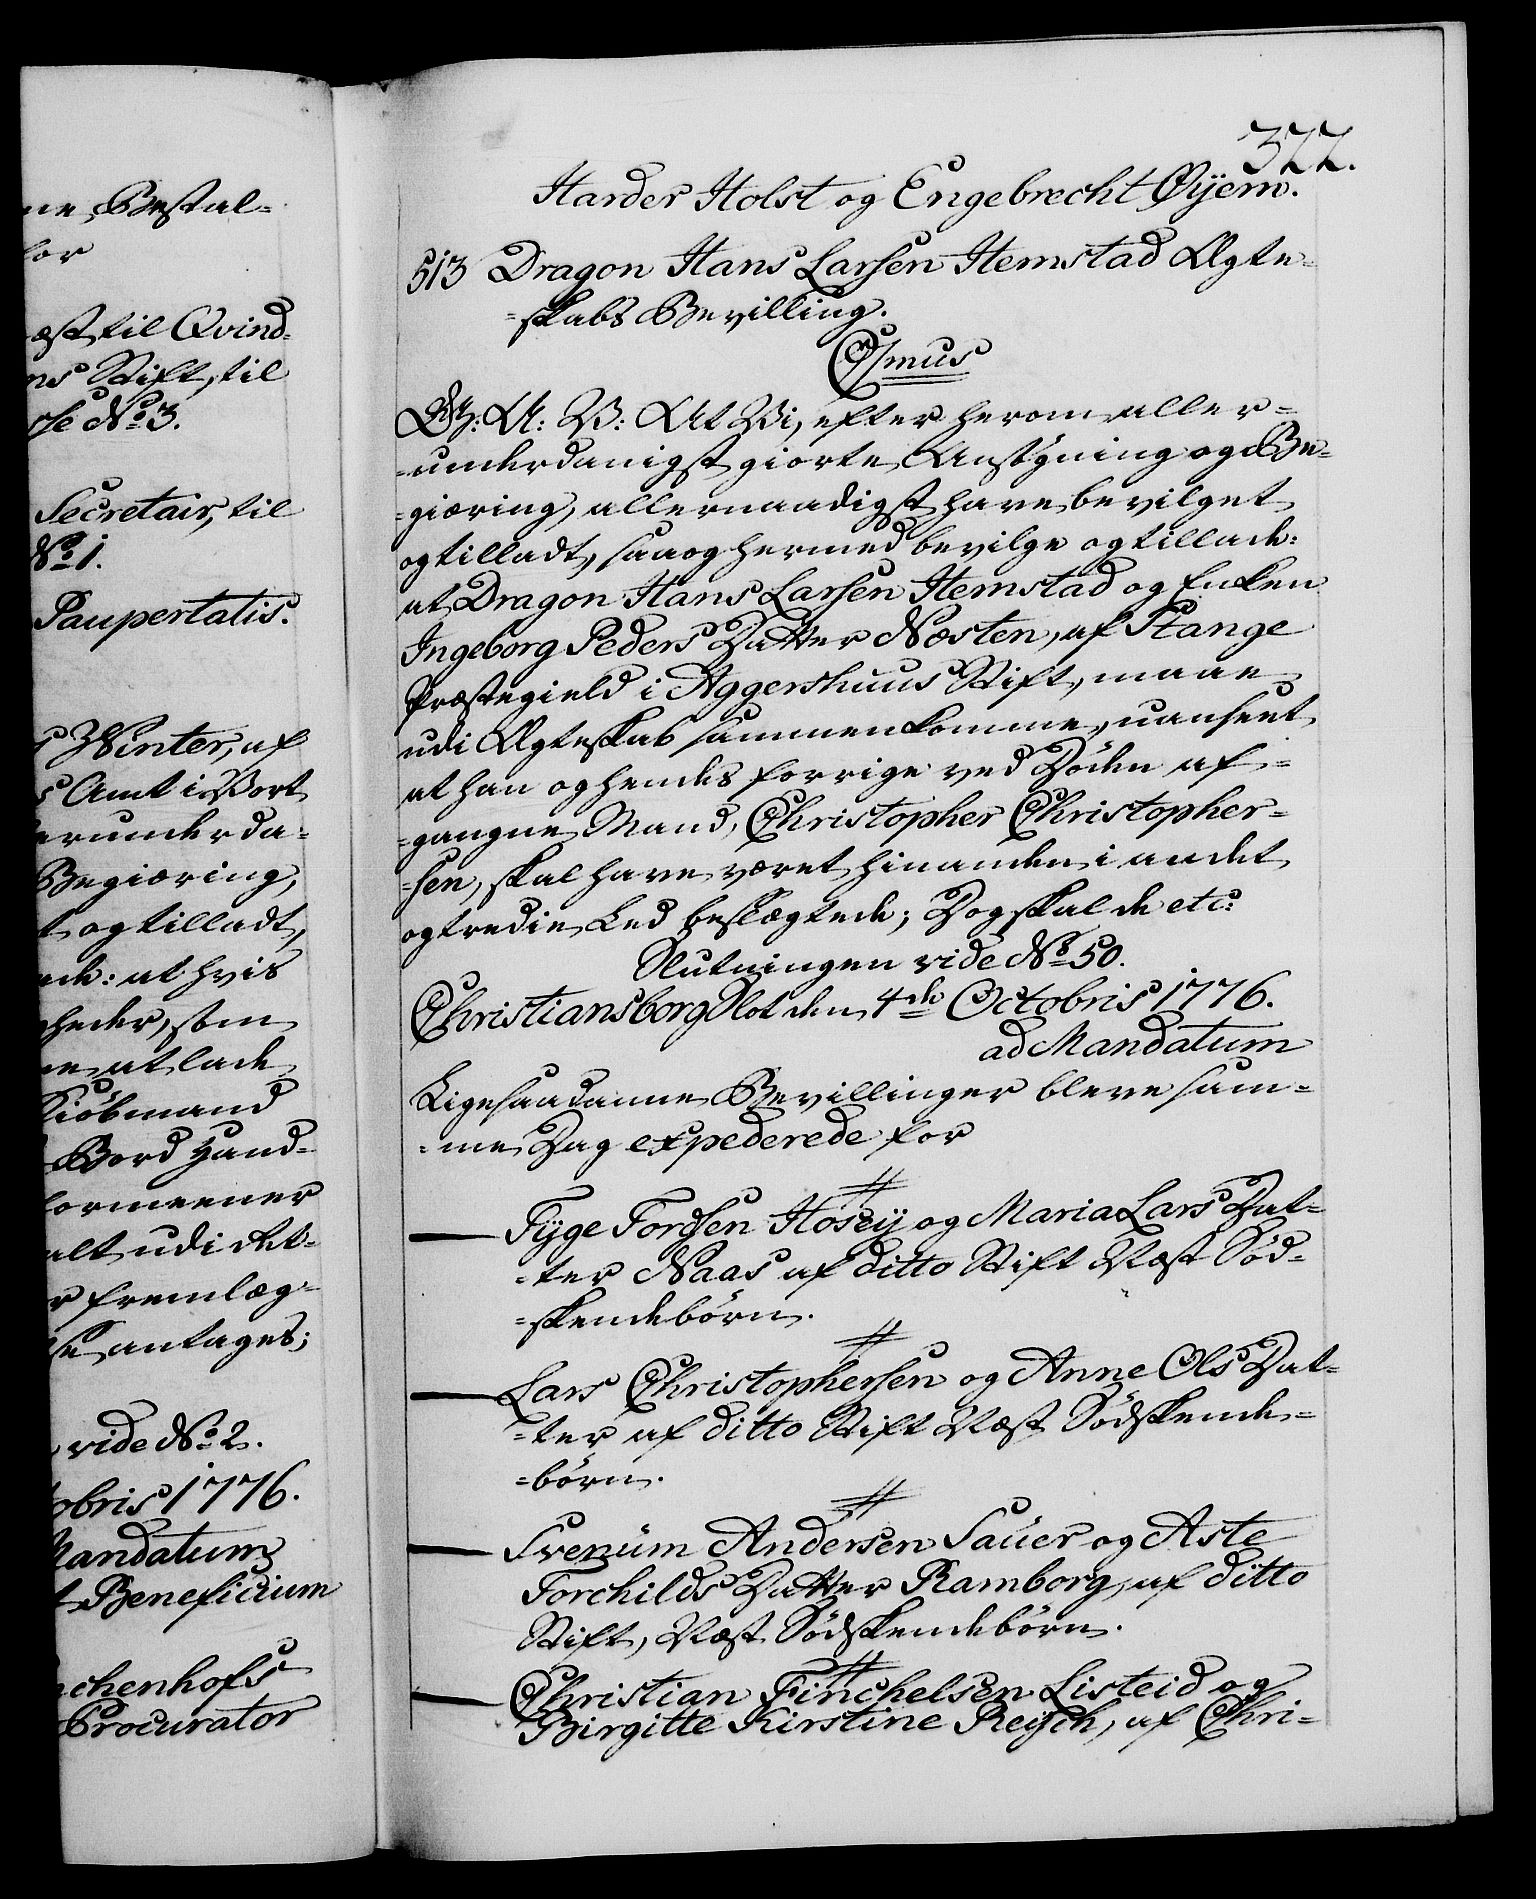 ne Bestal-
for
æst til Qvind-
ns Stift, til
rse No 3.
Secretair, til
No 1.
Paupertatis.
s Winter, af
s Amt i Vort
erunderda-
Begiæring,
t og tilladt,
ade: at hvis
heder, som
ne at lade
Kiöbmand
Bord Hand-
formeener
alt udi det-
r fremlæg-
se antages;
vide No 2.
obris 1776.
Mandatum
t Beneficium
chenhofs
Procurator
322.
Harder Holst og Engebrecht Øÿem.
513 Dragon Hans Larsen Hemstad Ægte-
-skabs Bevilling.
Csmus
G: A: V: At Vi, efter herom aller-
-underdanigst giorte Ansögning og Be-
-giæring, allernaadigst have bevilget
og tilladt, saa og hermed bevilge og tillade:
at Dragon Hans Larsen Hemstad og Enken
Ingeborg Peders Datter Næsten, af Stange
Præstegield i Aggershuus Stift, maae
udi Ægteskab sammenkomme, uanseet
at han og hendes forrige ved Döden af-
-gangne Mand, Christopher Christopher-
-sen, skal have været hinanden i andet
og tredie Led beslægtede; Dog skal de etc:
Slutningen vide No 50.
Christiansborg Slot den 4de Octobris 1776.
ad Mandatum
Ligesaadanne Bevillinger bleve sam-
-me Dag expederede for
Tÿge Tordsen Hoseÿ og Maria Lars Dat-
-ter Naas af ditto Stift Næst Söd-
-skendebörn.
Lars Christophersen og Anne Ols Dat-
-ter af ditto Stift Næst Södskende-
-börn.
Svenüm Andersen Saüer og Aste
Torchilds Datter Ramborg, af ditto
Stift, Næst Södskendebörn.
Christian Finchelsen Listeid og
Birgitte Kirstine Reÿsch, af Chri-